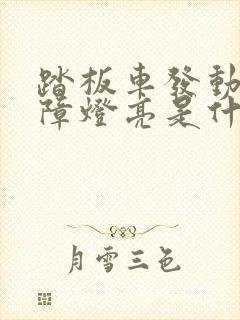 踏板車發動
障燈亮是什
月雪三色